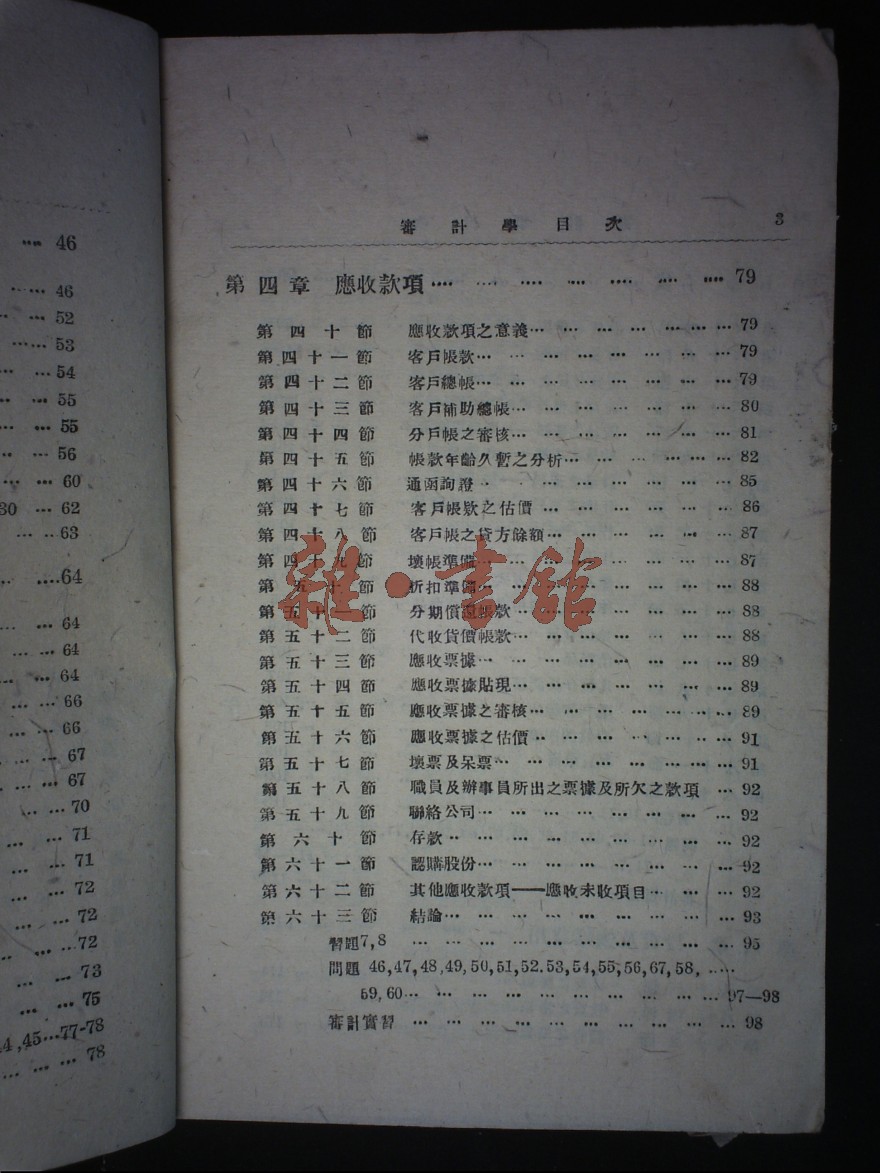 46
46
52
53
54
55
55
56
60
30 … 62
63
64
64
64
64
66
66
67
67
70
71
71
72
72
72
73
75
44,45…77-78
78
審計學目次 3
第四章 應收款項………………… 79
第四十節 應收款項之意義………………… 79
第四十一節 客戶帳款………………… 79
第四十二節 客戶總帳………………… 79
第四十三節 客戶補助總帳………………… 80
第四十四節 分戶帳之審核………………… 81
第四十五節 帳款年齡久暫之分析………………… 82
第四十六節 通函詢證………………… 85
第四十七節 客戶帳欵之估價………………… 86
第四十八節 客戶帳之貸方餘額………………… 87
第四十九節 壞帳準備………………… 87
第五十節 折扣準備………………… 88
第五十一節 分期償還帳款………………… 88
第五十二節 代收貨價帳款………………… 88
第五十三節 應收票據………………… 89
第五十四節 應收票據貼現………………… 89
第五十五節 應收票據之審核………………… 89
第五十六節 應收票據之估價………………… 91
第五十七節 壞票及呆票………………… 91
第五十八節 職員及辦事員所出之票據及所欠之款項 … 92
第五十九節 聯絡公司………………… 92
第六十節 存款………………… 92
第六十一節 認購股份………………… 92
第六十二節 其他應收款項——應收未收項目………… 92
第六十三節 結論………………… 93
習題7,8 ………………… 95
問題 46,47,48,49,50,51,52.53,54,55,56,67,58, ……
59,60………………… 97—98
審計實習 ………………… 98
雜·書館